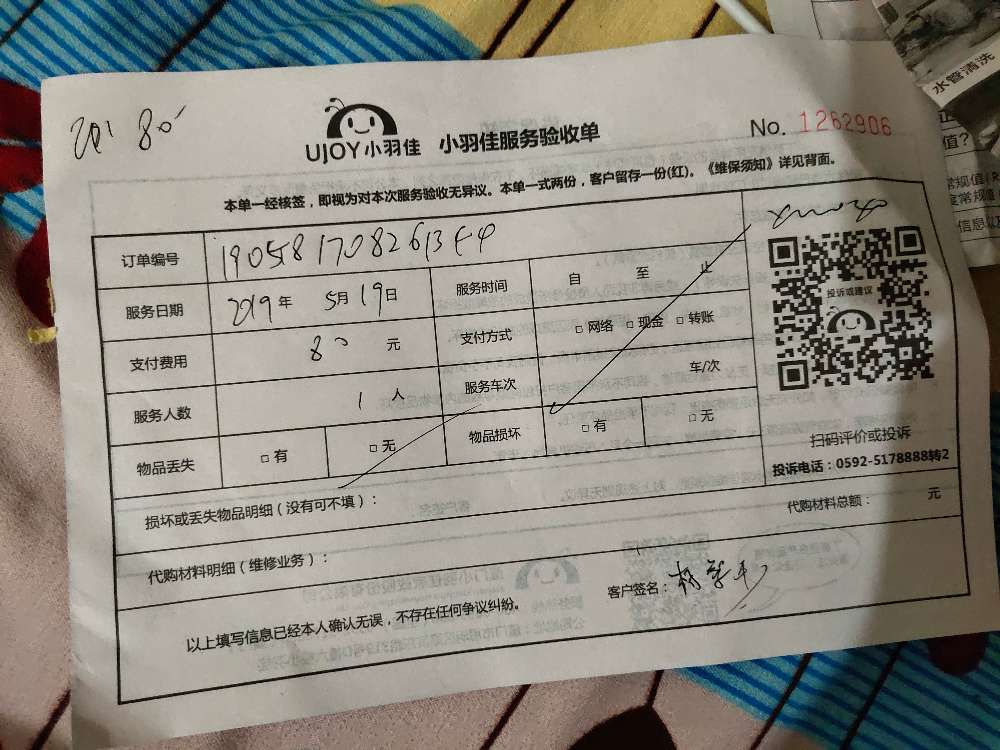 80
UJOY小羽佳 小羽佳服务验收单
No. 1262906
本单一经核签，即视为对本次服务验收无异议。本单一式两份，客户留存一份(红)。《维保须知》详见背面。
订单编号
服务日期 2019年 5月19日 服务时间 自 至 止
支付费用 80 元 支付方式 □网络 □现金 □转账
服务人数 1 人 服务车次 车/次
物品丢失 □有 □无 物品损坏 □有 □无
投诉或建议
扫码评价或投诉
投诉电话：0592-5178888转2
损坏或丢失物品明细（没有可不填）：
代购材料总额： 元
代购材料明细（维修业务）：
以上填写信息已经本人确认无误，不存在任何争议纠纷。
客户签名：
水管清洗
值?
常规值
信息